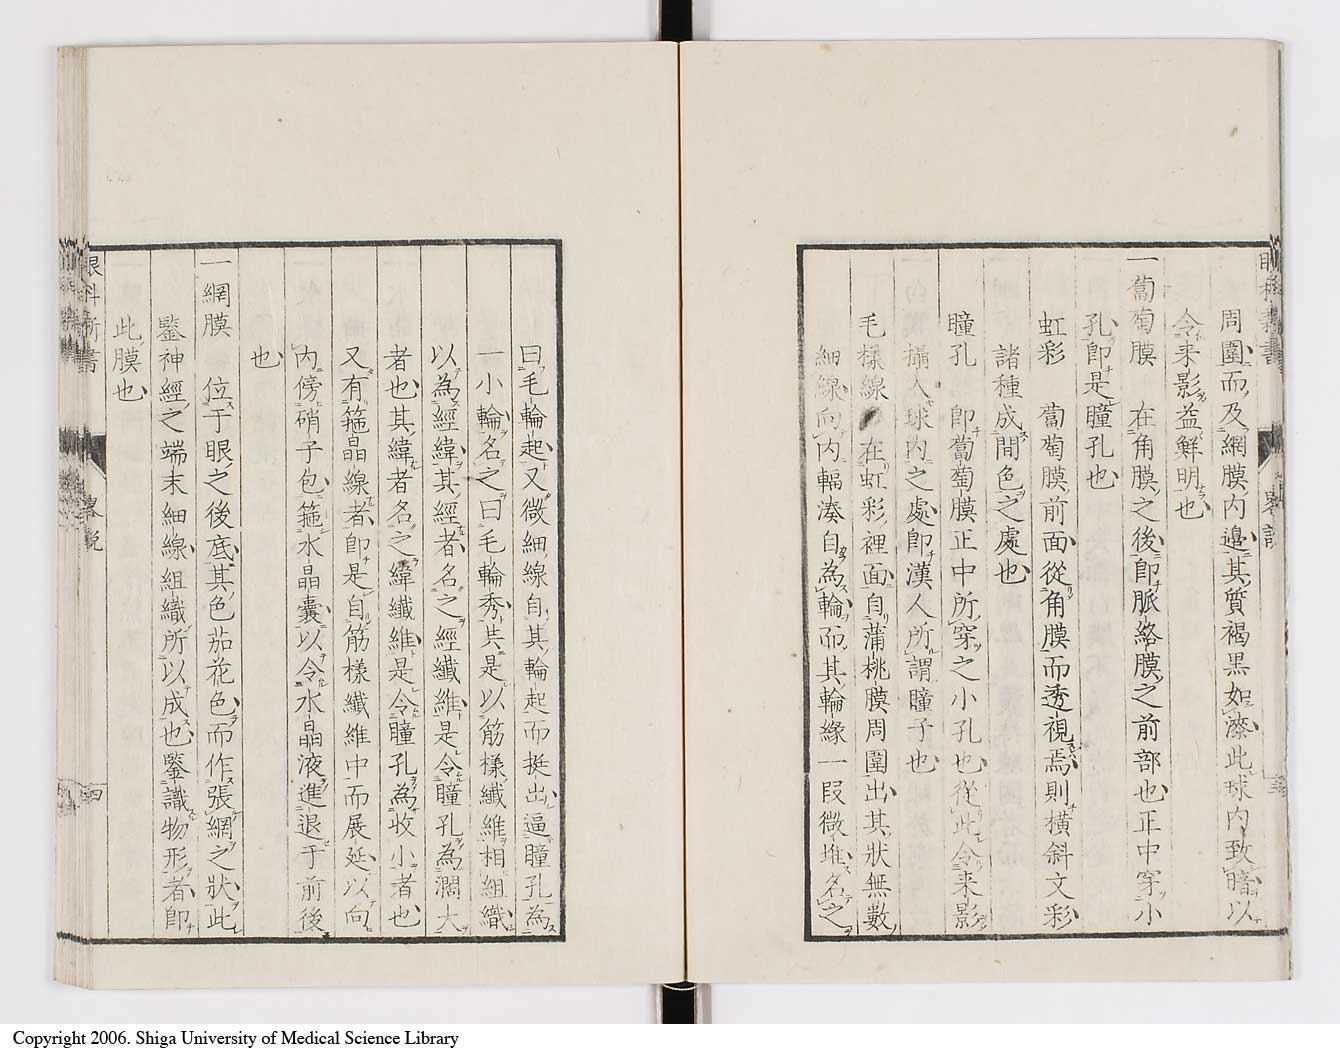 周圍而及網膜內邊其質褐黒如漆此球內致暗以
令来影益鮮明也
一葡萄膜 在角膜之後即脈絡膜之前部也正中穿小
孔即是瞳孔也
虹彩 葡萄膜前面從角膜而透視焉則横斜文彩
諸種成間色之處也
瞳孔 即葡萄膜正中所穿之小孔也從此令来影
攝入球内之處即漢人所謂瞳子也
毛様線 在虹彩裡面自蒲桃膜周圍出其状無數
細線向内輻湊自為輪而其輪緣一段微堆名之
曰毛輪起又微細線自其輪起而挺出逼瞳孔為
一小輪名之曰毛輪秀其是以筋樣纖維相組織
以為經緯其經者名之經纖維是令瞳孔為濶大
者也其緯者名之緯纖維是令瞳孔為收小者也
又有箍晶線者即是自筋樣纖維中而展延以向
内傍硝子包箍水晶囊以令水晶液進退于前後
也
一網膜 位于眼之後底其色茄花色而作張網之狀此
鑒神經之端末細線組織所以成也鑒識物形者即
此膜也
眼科新書
畧説
四
Copyright 2006. Shiga University of Medical Science Library